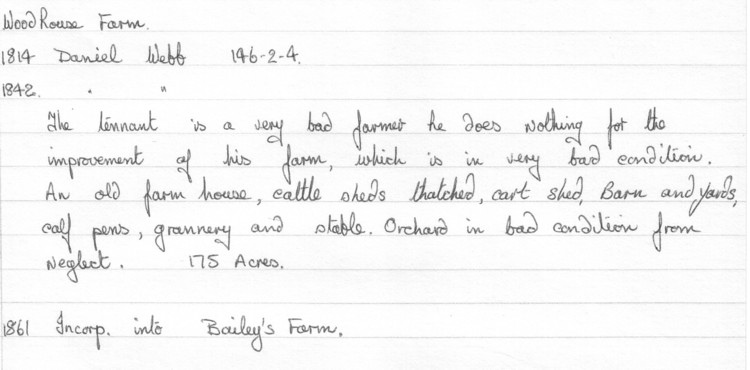 WoodRouse Farm.
1814 Daniel Webb 146-2-4.
1842. " "
The tennant is a very bad farmer he does nothing for the
improvement of his farm, which is in very bad condition.
An old farm house, cattle sheds thatched, cart shed, Barn and yards,
calf pens, grannery and stable. Orchard in bad condition from
neglect. 175 Acres.
1861 Incorp. into Bailey's Farm.